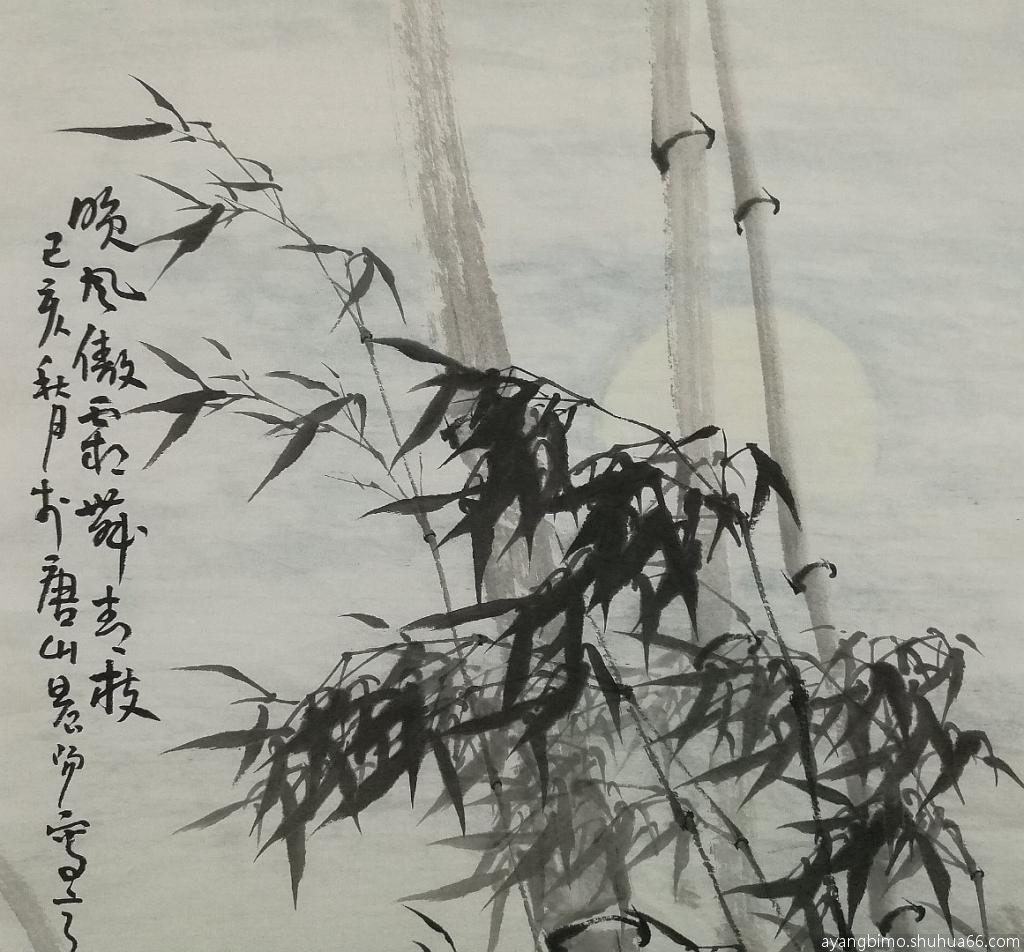 晚风傲霜舞青枝
己亥秋月於唐山阳写
ayangbimo.shuhua66.com